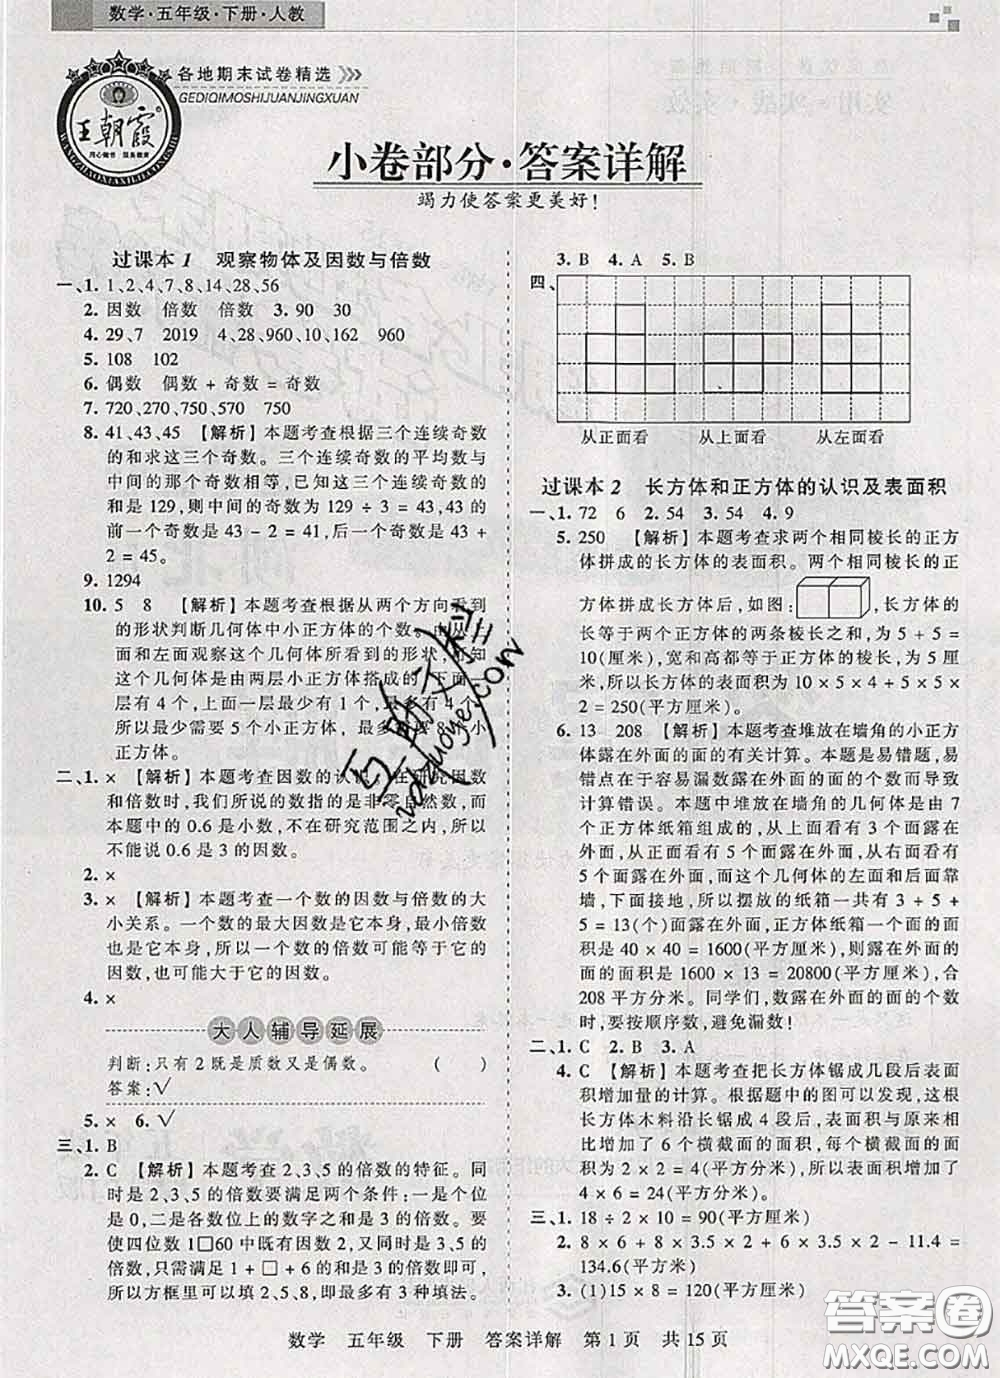 数学·五年级·下册·人教
各地期末试卷精选
GEDIQIMOSHIJUANJINGXUAN
王朝霞
小卷部分·答案详解
竭力使答案更美好!
过课本1 观察物体及因数与倍数
一、1. 1、2、4、7、8、14、28、56
2. 因数 倍数 倍数 3. 90 30
4. 29、7 2019 4、28、960、10、162 960
5. 108 102
6. 偶数 偶数 + 奇数 = 奇数
7. 720、270、750、570 750
8. 41、43、45 【解析】本题考查根据三个连续奇数
的和求这三个奇数。三个连续奇数的平均数与
中间的那个奇数相等,已知这三个连续奇数的
和是 129,则中间的奇数为 129 ÷ 3 = 43,43 的
前一个奇数是 43 - 2 = 41,后一个奇数是 43 +
2 = 45。
9. 1294
10. 5 8 【解析】本题考查根据从两个方向看到
的形状判断几何体中小正方体的个数。由从上
面和左面观察这个几何体所看到的形状,可知
这个几何体是由两层小正方体搭成的,下面一
层有 4 个,上面一层最少有 1 个,最多有 4 个,
所以最少需要 5 个小正方体,最多需要 8 个小
正方体。
二、1. × 【解析】本题考查因数的认识。在研究因数
和倍数时,我们所说的数指的是非零自然数,而
本题中的 0.6 是小数,不在研究范围之内,所以
不能说 0.6 是 3 的因数。
2. ×
3. × 【解析】本题考查一个数的因数与倍数的大
小关系。一个数的最大因数是它本身,最小倍数
也是它本身,所以一个数的倍数可能等于它的
因数,也可能大于它的因数。
4. ×
大人辅导延展
判断:只有 2 既是质数又是偶数。 ( )
答案:√
5. × 6. √
三、1. B
2. C 【解析】本题考查 2、3、5 的倍数的特征。同
时是 2、3、5 的倍数要满足两个条件:一是个位
是 0,二是各数位上的数字之和是 3 的倍数。要
使四位数 1□60 中既有因数 2,又是 3、5 的倍
数,只需满足 1 + □ + 6 的和是 3 的倍数即可,
所以方框里可以填 2、5、8,最多有 3 种填法。
3. B 4. A 5. B
四、
从正面看 从上面看 从左面看
过课本2 长方体和正方体的认识及表面积
一、1. 72 6 2. 54 3. 54 4. 9
5. 250 【解析】本题考查求两个相同棱长的正方
体拼成的长方体的表面积。两个相同棱长的正
方体拼成长方体后,如图: ,长方体的
长等于两个正方体的两条棱长之和,为 5 + 5 =
10(厘米),宽和高都等于正方体的棱长,为 5 厘
米,所以长方体的表面积为 10 × 5 × 4 + 5 × 5 ×
2 = 250(平方厘米)。
6. 13 208 【解析】本题考查堆放在墙角的小正方
体露在外面的面的有关计算。本题是易错题,易
错点在于容易漏数露在外面的面的个数而导致
计算错误。本题中堆放在墙角的几何体是由 7
个正方体纸箱组成的,从上面看有 3 个面露在
外面,从正面看有 5 个面露在外面,从右面看有
5 个面露在外面,而这个几何体的左面和后面靠
墙,下面接地,所以摆放的纸箱一共有 3 + 5 +
5 = 13(个)面露在外面,正方体纸箱一个面的面
积是 40 × 40 = 1600(平方厘米),则露在外面的
面的面积是 1600 × 13 = 20800(平方厘米),合
208 平方分米。同学们,数露在外面的面的个数
时,要按顺序数,避免漏数!
二、1. C 2. B 3. A
4. C 【解析】本题考查把长方体锯成几段后表面
积增加量的计算。根据题中的图可以发现,一根
长方体木料沿长锯成 4 段后,表面积与原来相
比增加了 6 个横截面的面积,每个横截面的面
积是 4 平方分米,所以这根木料的表面积增加了
4 × 6 = 24(平方分米)。
三、1. 18 ÷ 2 × 10 = 90(平方厘米)
2. 8 × 6 + 8 × 3.5 × 2 + 6 × 3.5 × 2 - 11.4 =
134.6(平方米)
3. (1)15 × 8 = 120(平方厘米)
数学 五年级 下册 答案详解 第 1 页 共 15 页
答案圈
MXQE.COM